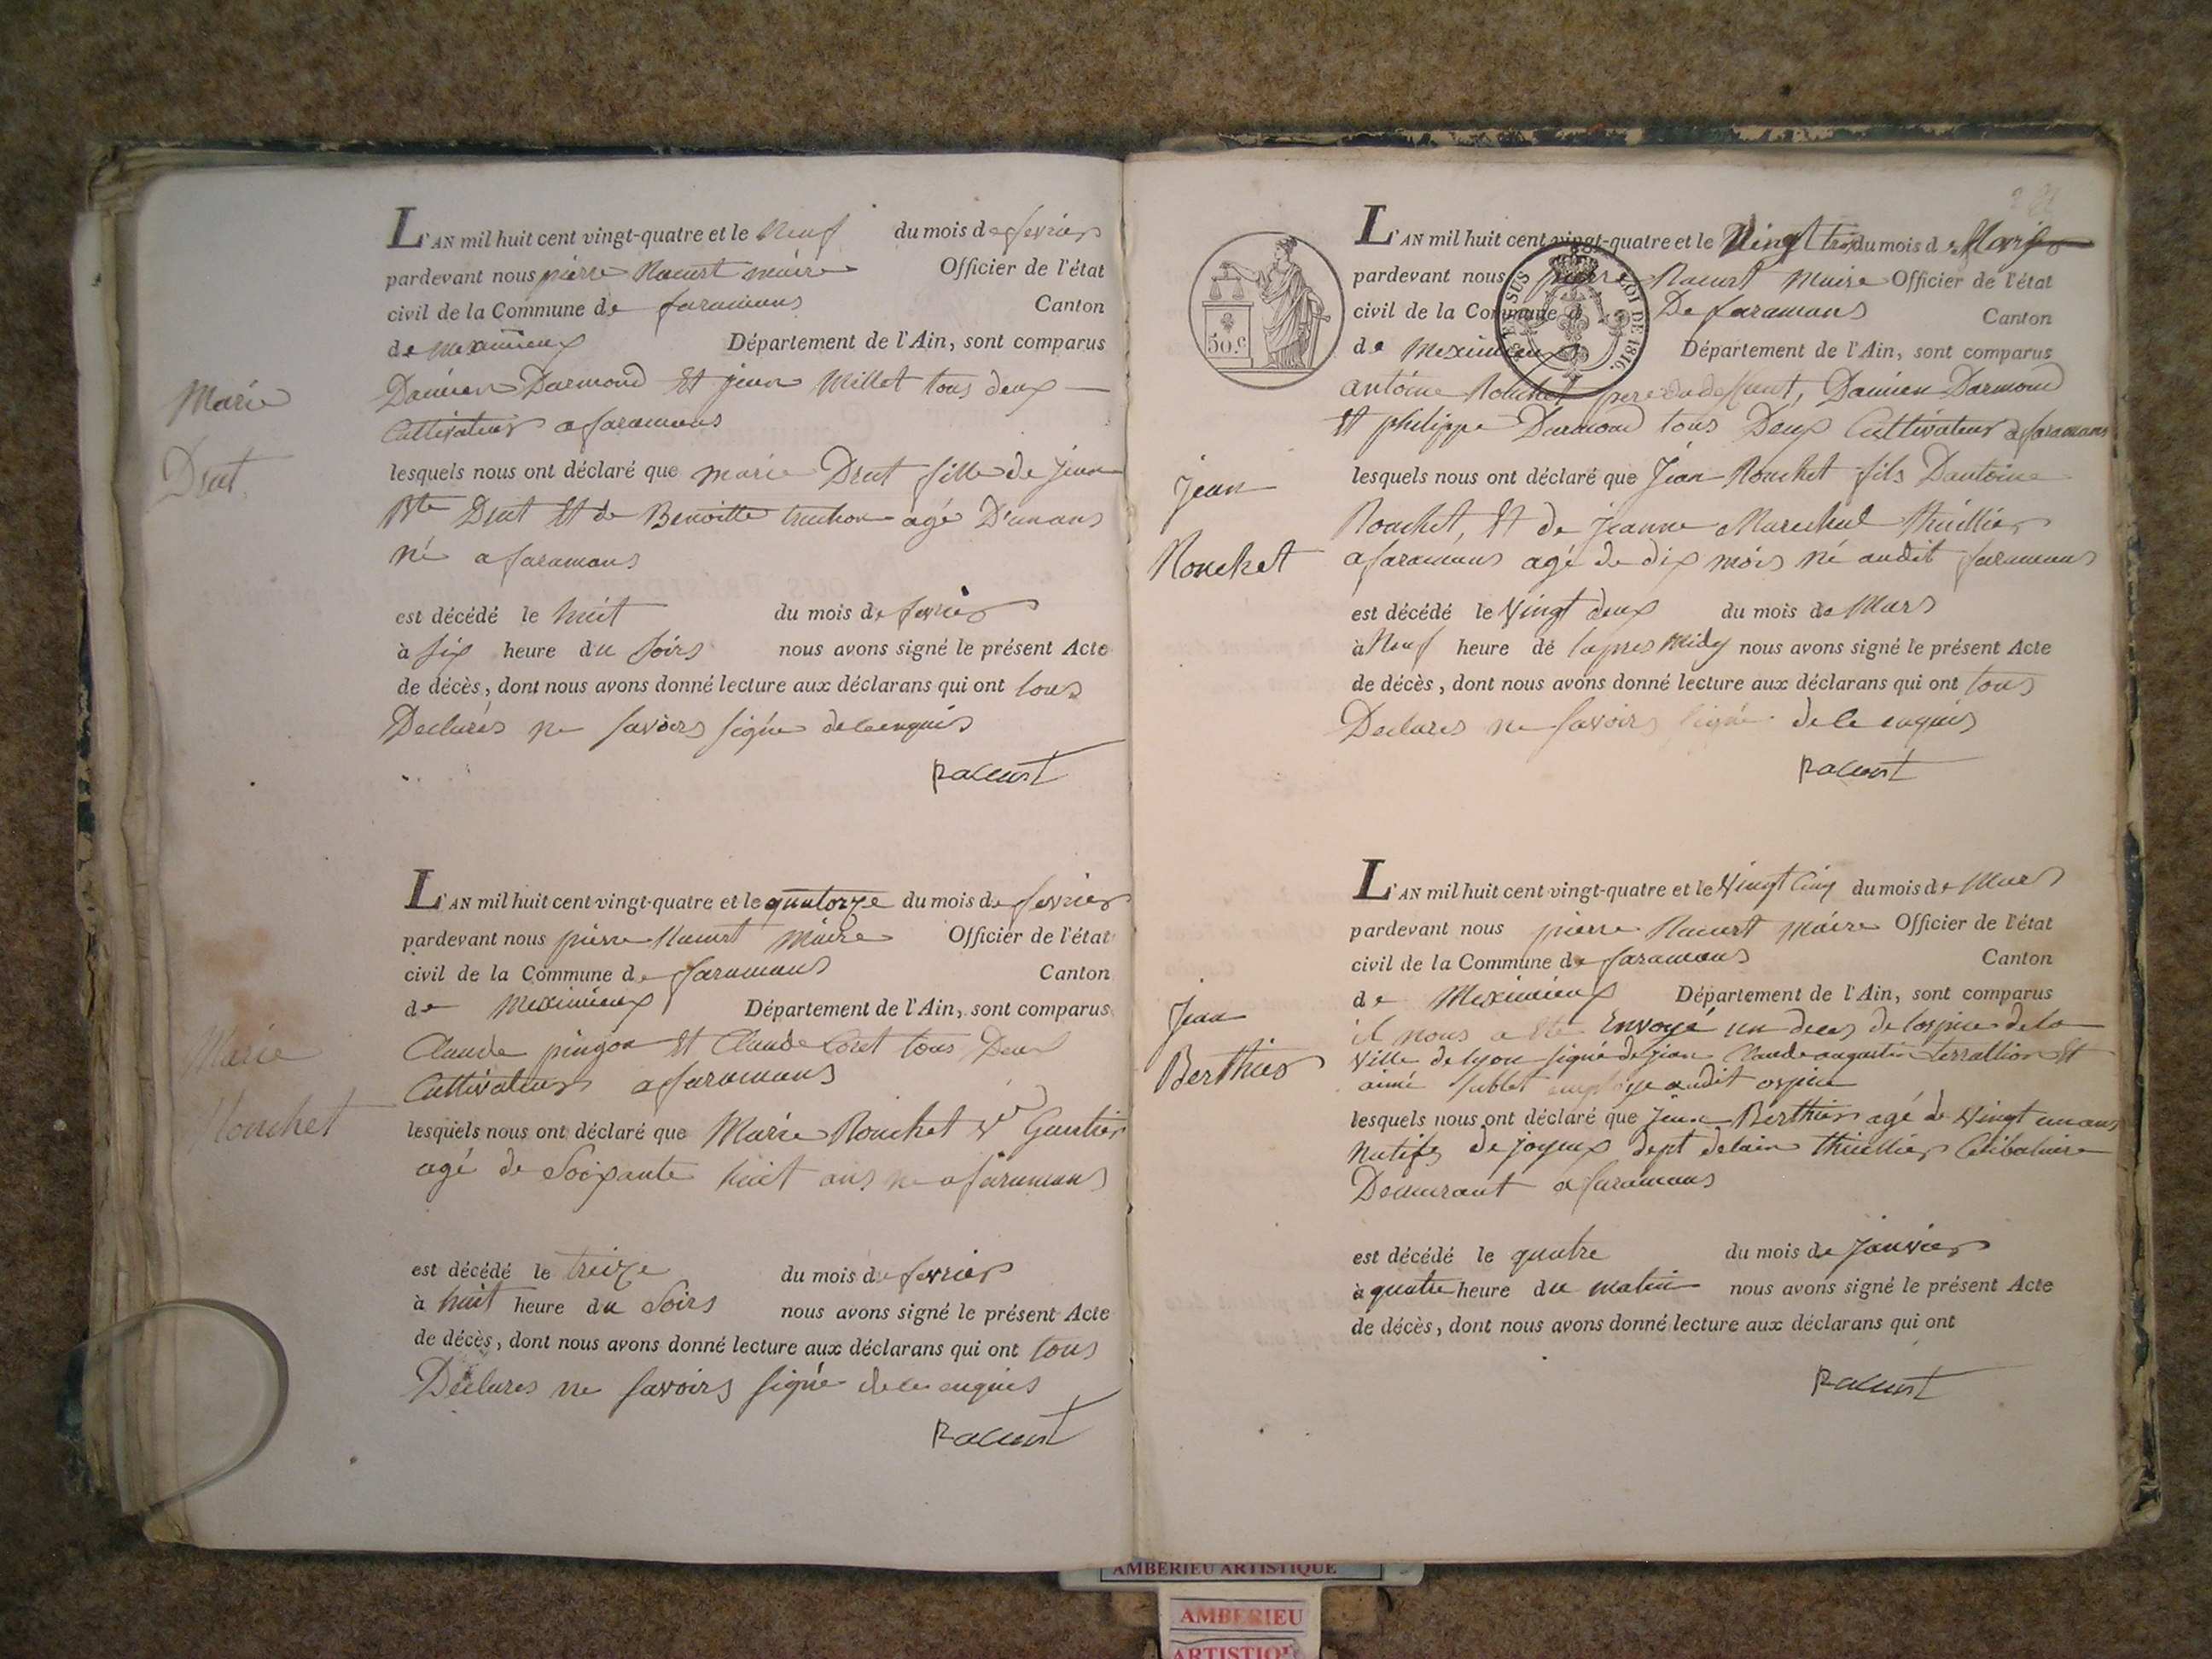 L'AN mil huit cent vingt-quatre et le neuf du mois de fevrier
pardevant nous pierre Racurt maire Officier de l'état
civil de la Commune de faramans Canton
de meximieux Département de l'Ain, sont comparus
Damien Darmond et jean Millet tous deux
Cultivateur a faramans
Marie
Drut
lesquels nous ont déclaré que marie Drut fille de jean
Bte Drut Et de Benoitte truchon agé D'un ans
né a faramans
est décédé le huit du mois de fevrier
à six heure du Soirs nous avons signé le présent Acte
de décès, dont nous avons donné lecture aux déclarans qui ont tous
Declarés ne savoirs signé de le enquis
Racurt
L'AN mil huit cent vingt-quatre et le quatorze du mois de fevrier
pardevant nous pierre Racurt Maire Officier de l'état
civil de la Commune de faramans Canton
de Meximieux Département de l'Ain, sont comparus
Claude pingon Et Claude Coret tous Deux
Cultivateur a faramans
Marie
Rouchet
lesquels nous ont déclaré que Marie Rouchet Ve Gautier
agé de Soixante huit ans né a faramans
est décédé le treize du mois de fevrier
à huit heure du Soirs nous avons signé le présent Acte
de décès, dont nous avons donné lecture aux déclarans qui ont tous
Declares ne savoirs signé de le enquis
Racurt
L'AN mil huit cent vingt-quatre et le Vingt trois du mois de Mars
pardevant nous pierre Racurt Maire Officier de l'état
civil de la Commune d De faramans Canton
de Meximieux Département de l'Ain, sont comparus
50.c
SUS LOI DE 1816.
antoine Rouchet pere du deffunt, Damien Darmond
Et philippe Darmond tous Deux Cultivateur a faramans
Jean
Rouchet
lesquels nous ont déclaré que Jean Rouchet fils Dantoine
Rouchet, Et de jeanne Marechal thuillier
a faramans agé de dix mois né audit faramans
est décédé le Vingt deux du mois de Mars
à Neuf heure de lapres Midy nous avons signé le présent Acte
de décès, dont nous avons donné lecture aux déclarans qui ont tous
Declares ne savoirs signé de le enquis
Racurt
L'AN mil huit cent vingt-quatre et le Vingt Cinq du mois de Mars
pardevant nous pierre Racurt Maire Officier de l'état
civil de la Commune de faramans Canton
de Meximieux Département de l'Ain, sont comparus
il nous a Eté Envoyé un deces de lospice de la
Ville de lyon signé de jean Claude augustin terrallion Et
aimé Sublet employe audit ospice
Jean
Berthier
lesquels nous ont déclaré que Jean Berthier agé de Vingt un ans
Natifs de joyeux dept delain thuillier Célibataire
Demeurant a faramans
est décédé le quatre du mois de Janvier
à quatre heure du matin nous avons signé le présent Acte
de décès, dont nous avons donné lecture aux déclarans qui ont
Racurt
AMBERIEU ARTISTIQUE
AMBERIEU
ARTISTIQUE